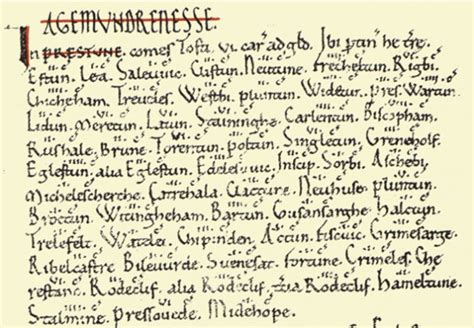 AGEMVNDRENESSE.
In PRESTVNE. comes Tosti. vi. car ad gld. Ibi ptin he tre.
Estun. Lea. Saleuuic. Clistun. Neutune. Frecheltun. Rigbi.
Chicheham. Treueles. Westbi. Pluntun. Widetun. Pres. Wartun.
Lidun. Meretun. Latun. Staininghe. Carlentun. Biscopham.
Rushale. Brune. Torentun. Poltun. Singletun. Greneholf.
Eglestun. alia Eglestun. Edeleswic. Inscip. Sorbi. Aschebi.
Michelescherche. Catrehala. Clactune. Neuhuse. Pluntun.
Broctun. Witingheham. Bartun. Gusansarghe. Halctun.
Trelefelt. Watelei. Chipinden. Actun. Fiscuic. Grimesarge.
Ribelcastre. Bileuurde. Suenesat. Fortune. Crimeles. Che
restanc. Rodeclif. alia Rodeclif. tcia Rodeclif. Hameltune.
Stalmine. Pressouede. Midehope.